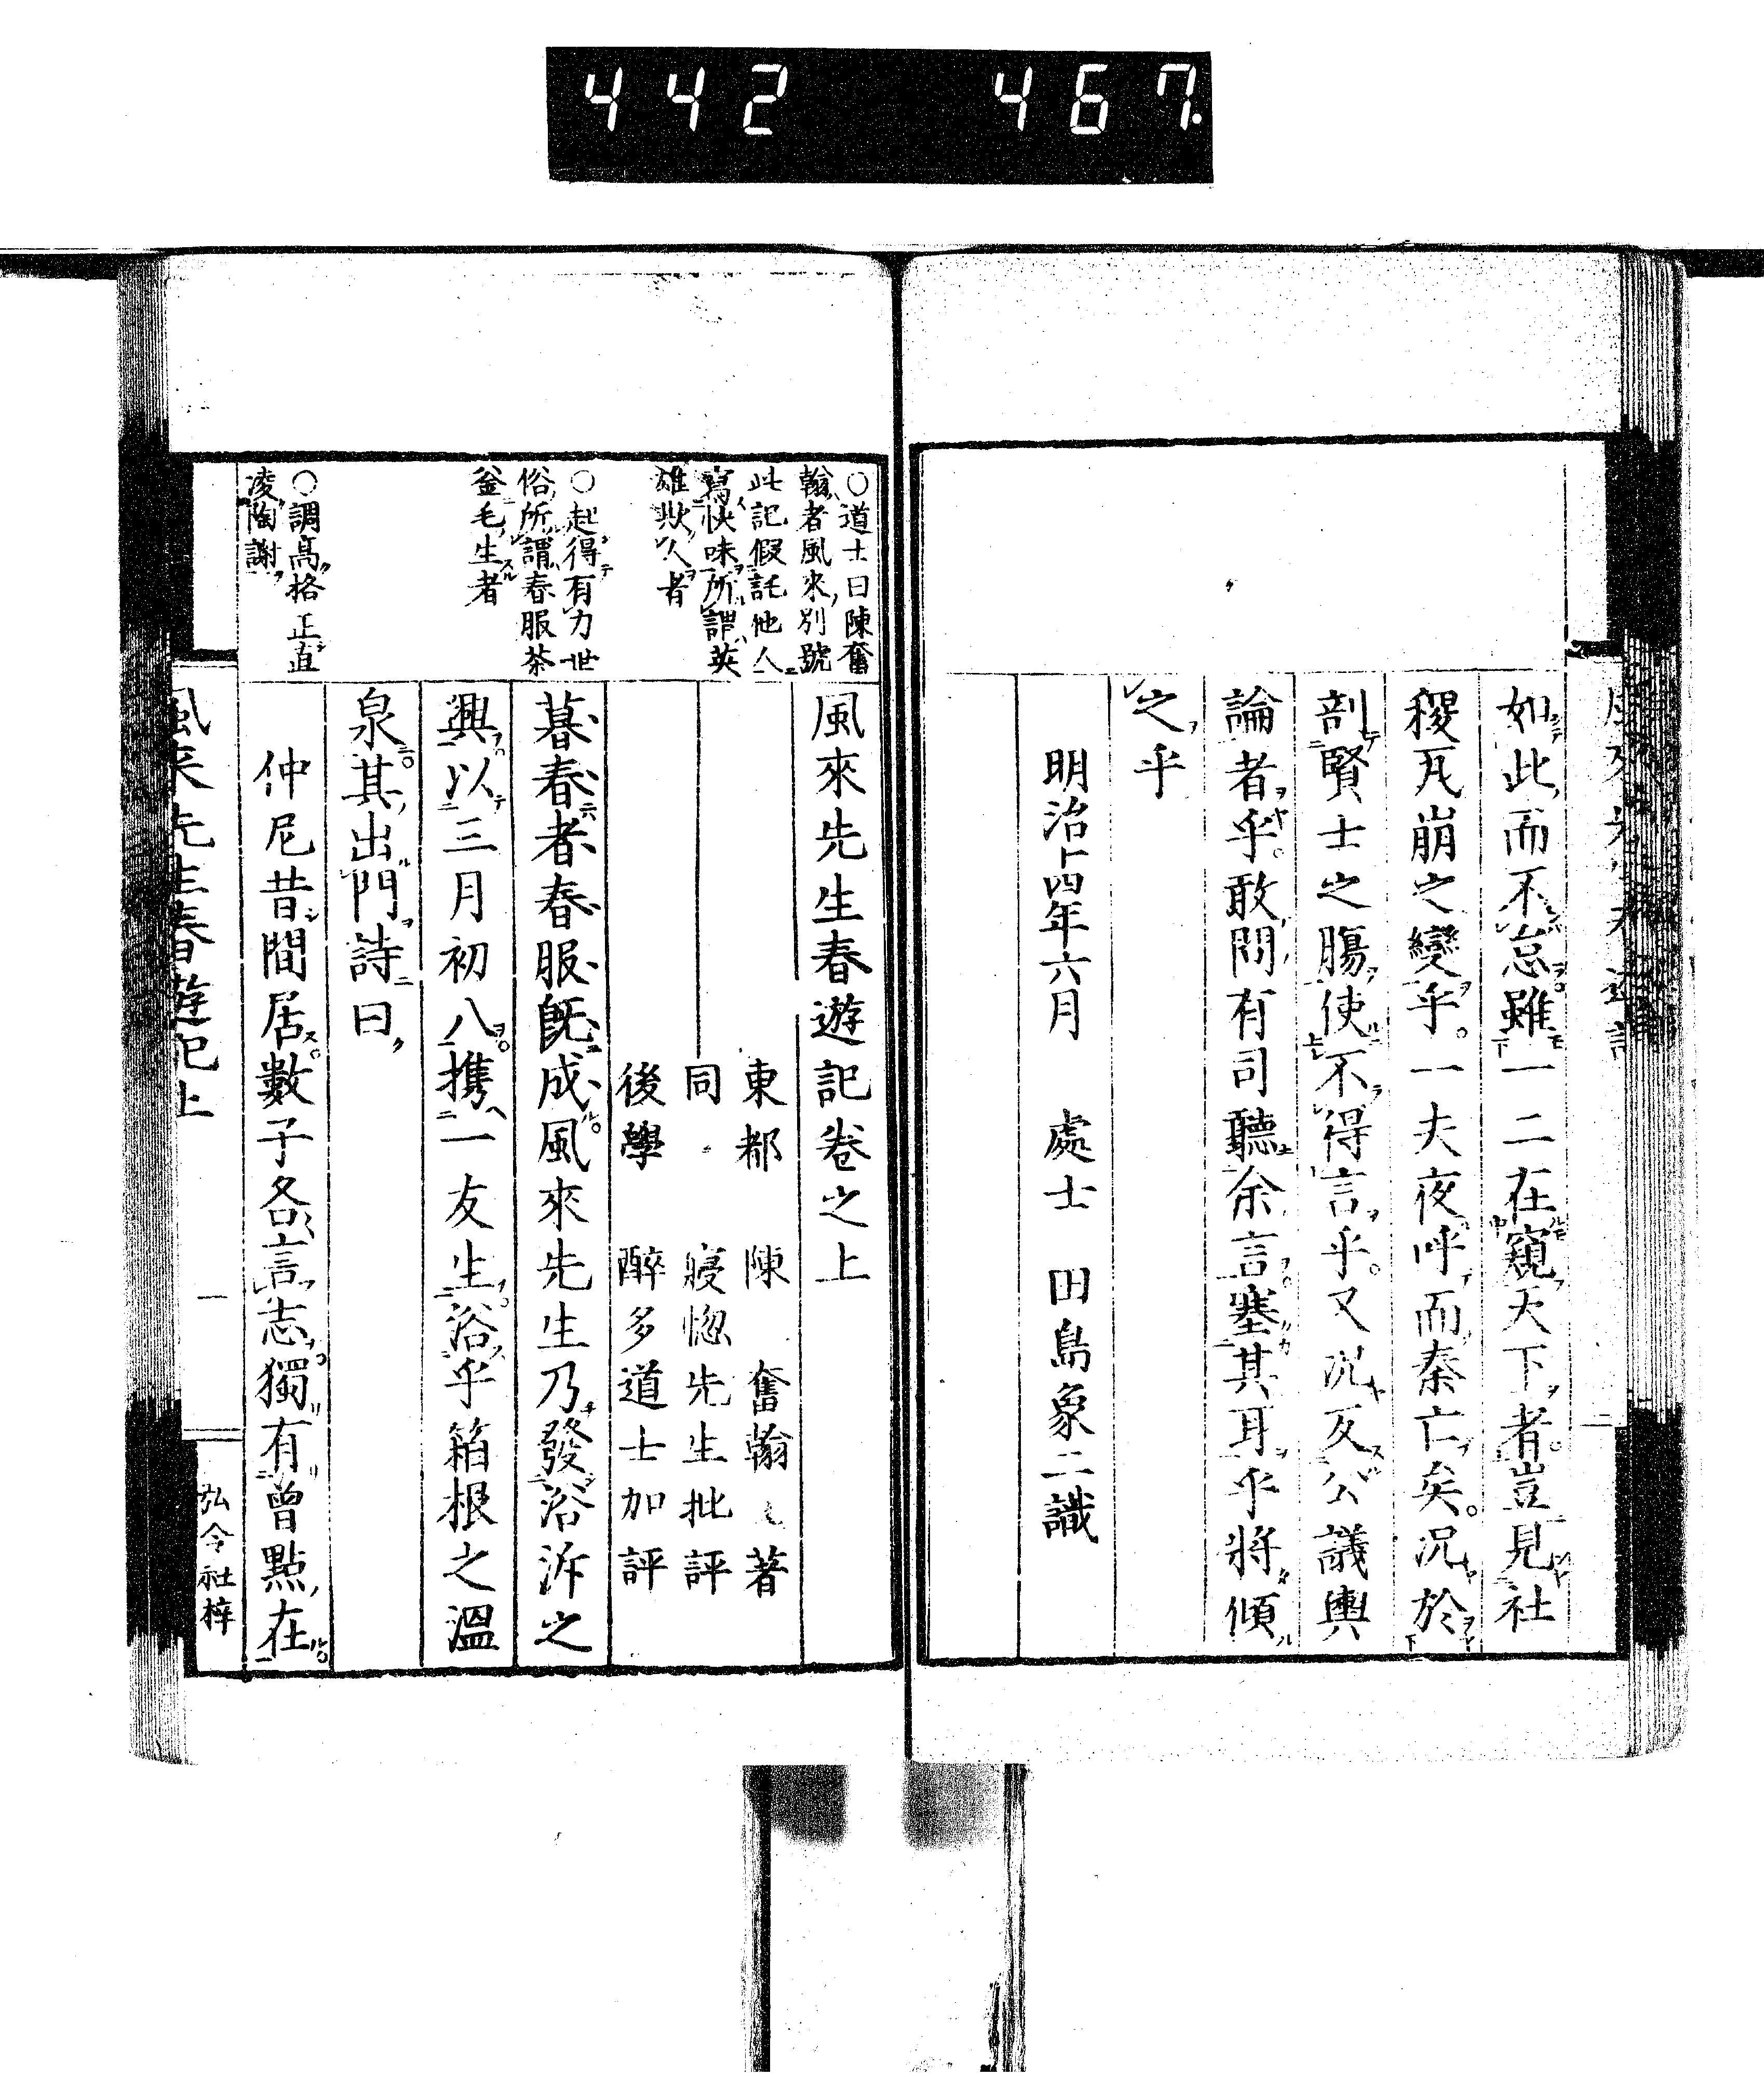 442 467.
如此而不怠雖一二在窺天下者豈見社
稷瓦崩之變乎一夫夜呼而秦亡矣況於
剖賢士之膓使不得言乎又況反公議輿
論者乎敢問有司聽余言塞其耳乎將傾
之乎
明治十四年六月　處士　田島象二識
風來先生春遊記卷之上
東都　陳　奮翰　著
同　寢惚先生批評
後學　醉多道士加評
暮春者春服既成風來先生乃發浴泝之
興以三月初八携一友生浴乎箱根之溫
泉其出門詩曰
仲尼昔間居數子各言志獨有曾點在
○道士曰陳奮
翰者風來別號
此記假託他人
寫快味所謂英
雄欺人者
○起得有力世
俗所謂春服茶
釜毛生者
○調高格正直
凌陶謝
風來先生春遊記上
一
弘令社梓